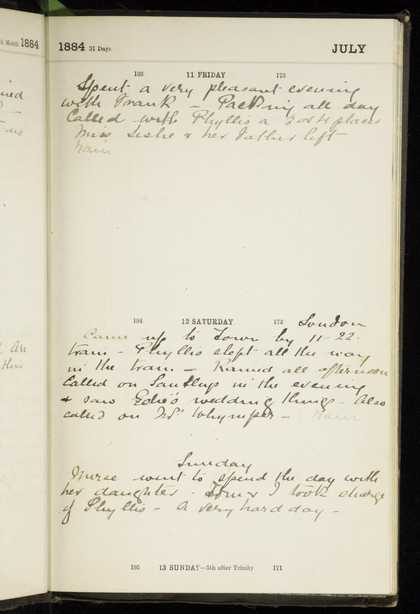 h Month 1884
1884 31 Days JULY
193 11 FRIDAY 173
Spent a very pleasant evening
with Frank - Packing all day
Called with Phyllis a places
Miss Leslie & her Father left
Rain
194 12 SATURDAY 172 London
Came up to Town by 11-22
train - Phyllis slept all the way
in the train - Rained all afternoon
Called on in the evening
& saw Edie's wedding things - Also
called on Whymper - Rain
Sunday
Nurse went to spend the day with
her daughter. & I took charge
of Phyllis - A very hard day -
195 13 SUNDAY—5th after Trinity 171